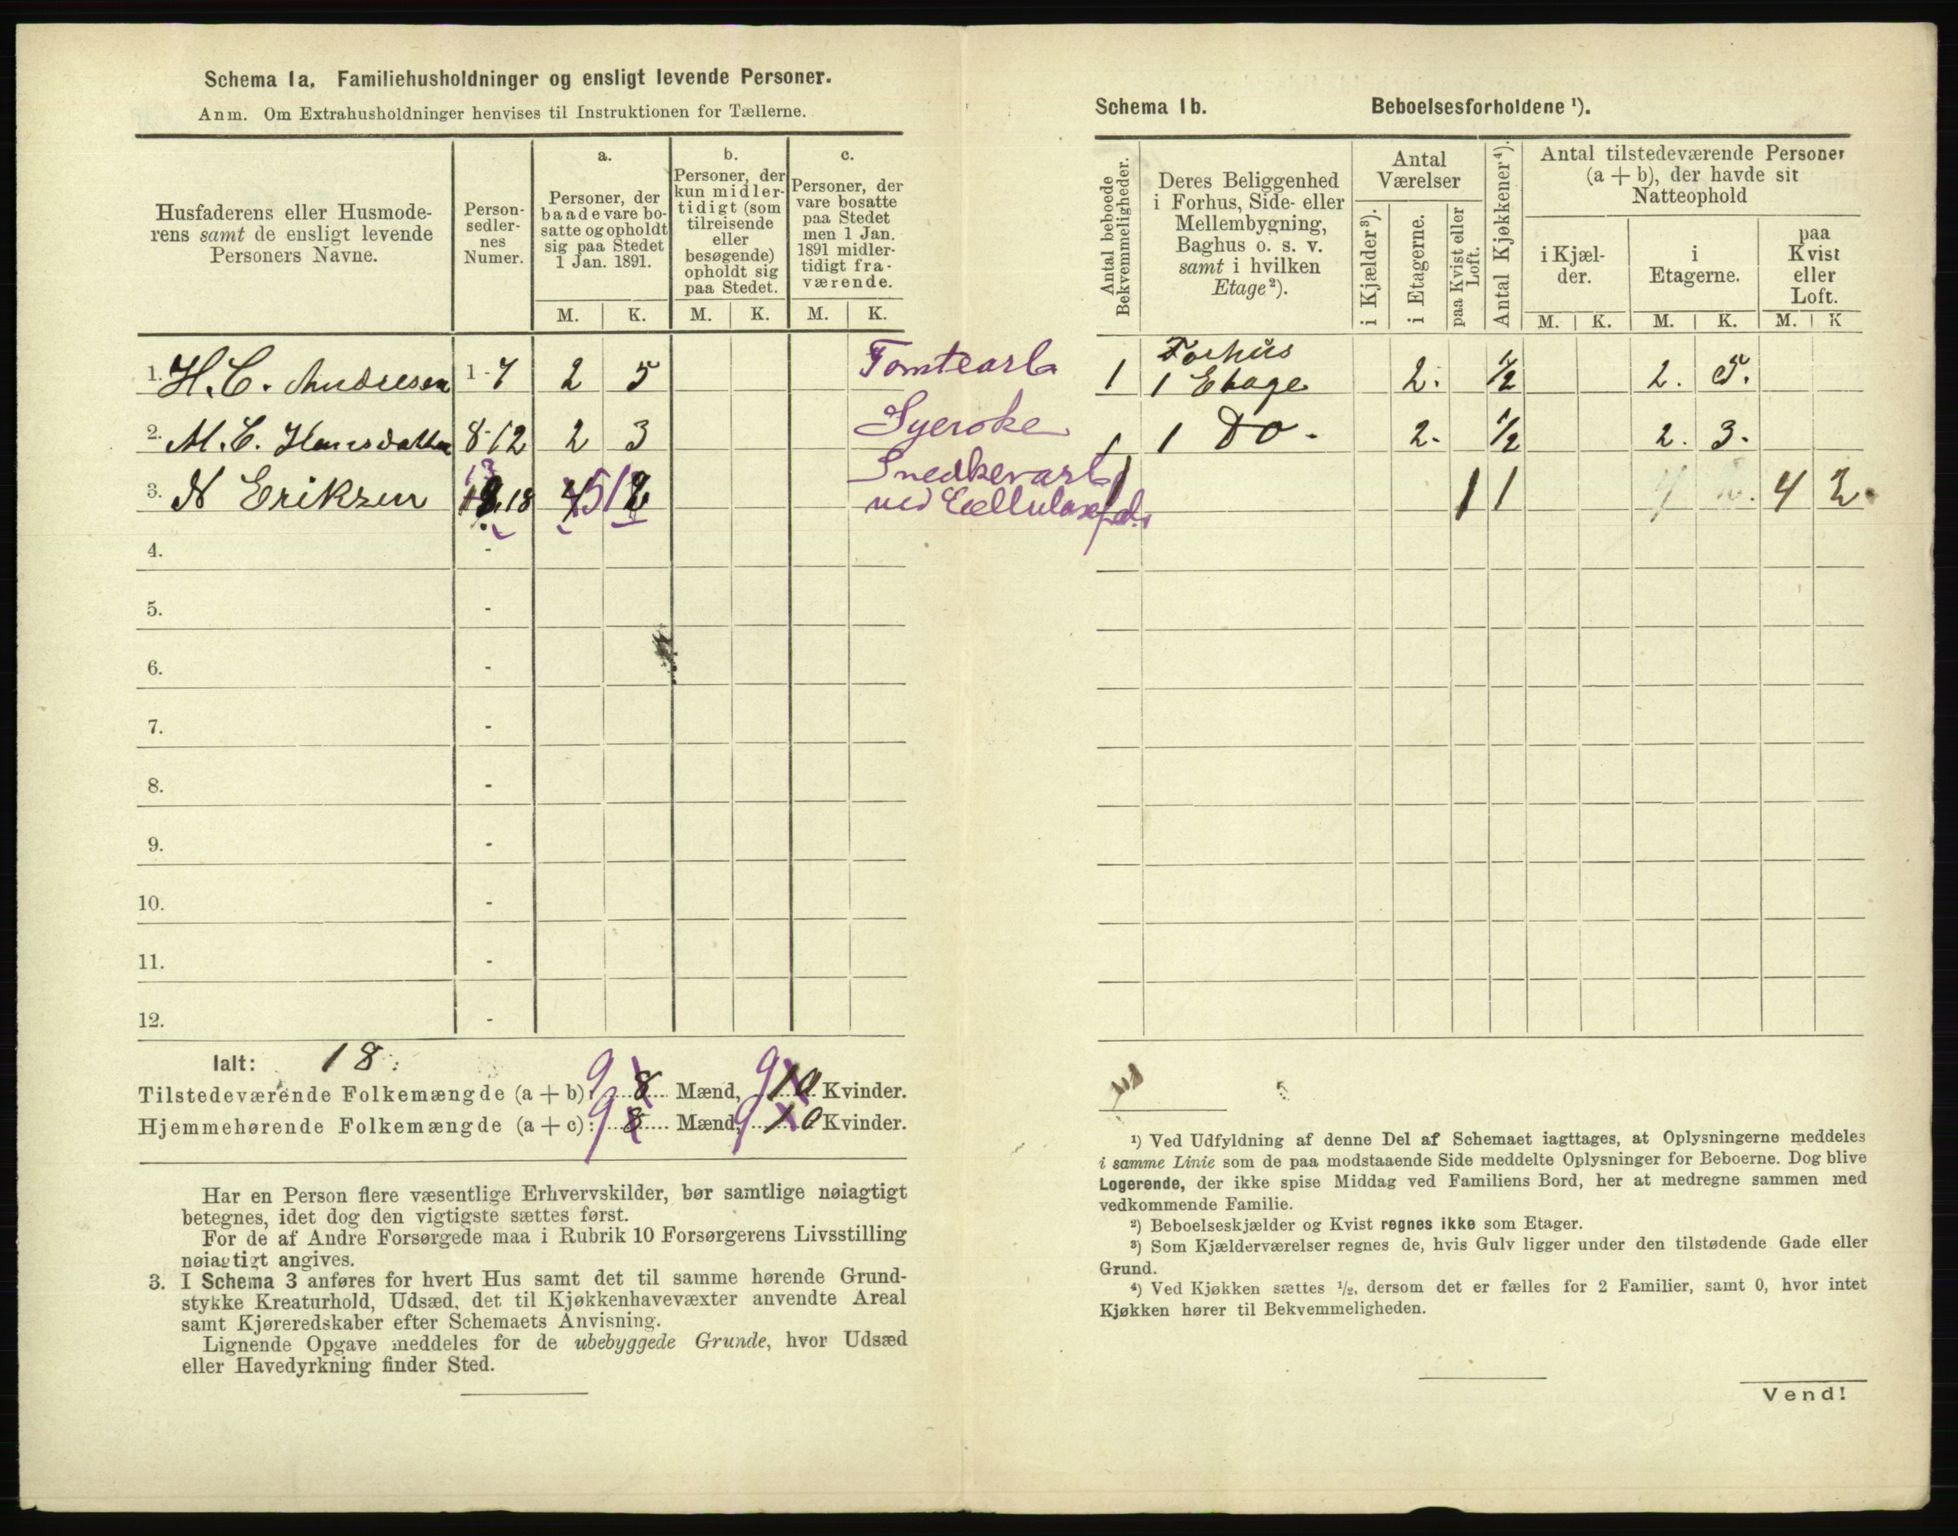 Schema 1a. Familiehusholdninger og ensligt levende Personer.
Anm. Om Extrahusholdninger henvises til Instruktionen for Tællerne.
Husfaderens eller Husmode-
rens samt de ensligt levende
Personers Navne.
Person-
sedler-
nes
Numer.
a.
Personer, der
baade vare bo-
satte og opholdt
sig paa Stedet
1 Jan. 1891.
b.
Personer, der
kun midler-
tidigt (som
tilreisende
eller
besøgende)
opholdt sig
paa Stedet.
c.
Personer, der
vare bosatte
paa Stedet
men 1 Jan.
1891 midler-
tidigt fra-
værende.
M. K. M. K. M. K.
1. H. C. Andresen 1-7 2 5 Tomtearb
2. M. C. Hansdatter 8-12 2 3 Syerske
3. N Eriksen 13-18 5 1 Snedkerarb
ved Cellulosefab.
4. -
5. -
6. -
7. -
8. -
9. -
10. -
11. -
12. -
Ialt: 18:
Tilstedeværende Folkemængde (a + b): 9 8 Mænd, 9 10 Kvinder.
Hjemmehørende Folkemængde (a + c): 9 8 Mænd, 9 10 Kvinder.
Har en Person flere væsentlige Erhvervskilder, bør samtlige nøiagtigt
betegnes, idet dog den vigtigste sættes først.
For de af Andre Forsørgede maa i Rubrik 10 Forsørgerens Livsstilling
nøiagtigt angives.
3. I Schema 3 anføres for hvert Hus samt det til samme hørende Grund-
stykke Kreaturhold, Udsæd, det til Kjøkkenhavevæxter anvendte Areal
samt Kjøreredskaber efter Schemaets Anvisning.
Lignende Opgave meddeles for de ubebyggede Grunde, hvor Udsæd
eller Havedyrkning finder Sted.
Schema 1b. Beboelsesforholdene ¹).
Antal beboede
Bekvemmeligheder.
Deres Beliggenhed
i Forhus, Side- eller
Mellembygning,
Baghus o. s. v.
samt i hvilken
Etage²).
Antal
Værelser
i Kjælder³).
i Etagerne.
paa Kvist eller
Loft.
Antal Kjøkkener⁴).
Antal tilstedeværende Personer
(a + b), der havde sit
Natteophold
i Kjæl-
der.
i
Etagerne.
paa
Kvist
eller
Loft.
M. K. M. K. M. K
1 Forhus
1 Etage 2. ½ 2. 5.
1 1 Do. 2. ½ 2. 3.
1 1 1 4 2 4 2.
¹) Ved Udfyldning af denne Del af Schemaet iagttages, at Oplysningerne meddeles
i samme Linie som de paa modstaaende Side meddelte Oplysninger for Beboerne. Dog blive
Logerende, der ikke spise Middag ved Familiens Bord, her at medregne sammen med
vedkommende Familie.
²) Beboelseskjælder og Kvist regnes ikke som Etager.
³) Som Kjælderværelser regnes de, hvis Gulv ligger under den tilstødende Gade eller
Grund.
⁴) Ved Kjøkken sættes ½, dersom det er fælles for 2 Familier, samt 0, hvor intet
Kjøkken hører til Bekvemmeligheden.
Vend!